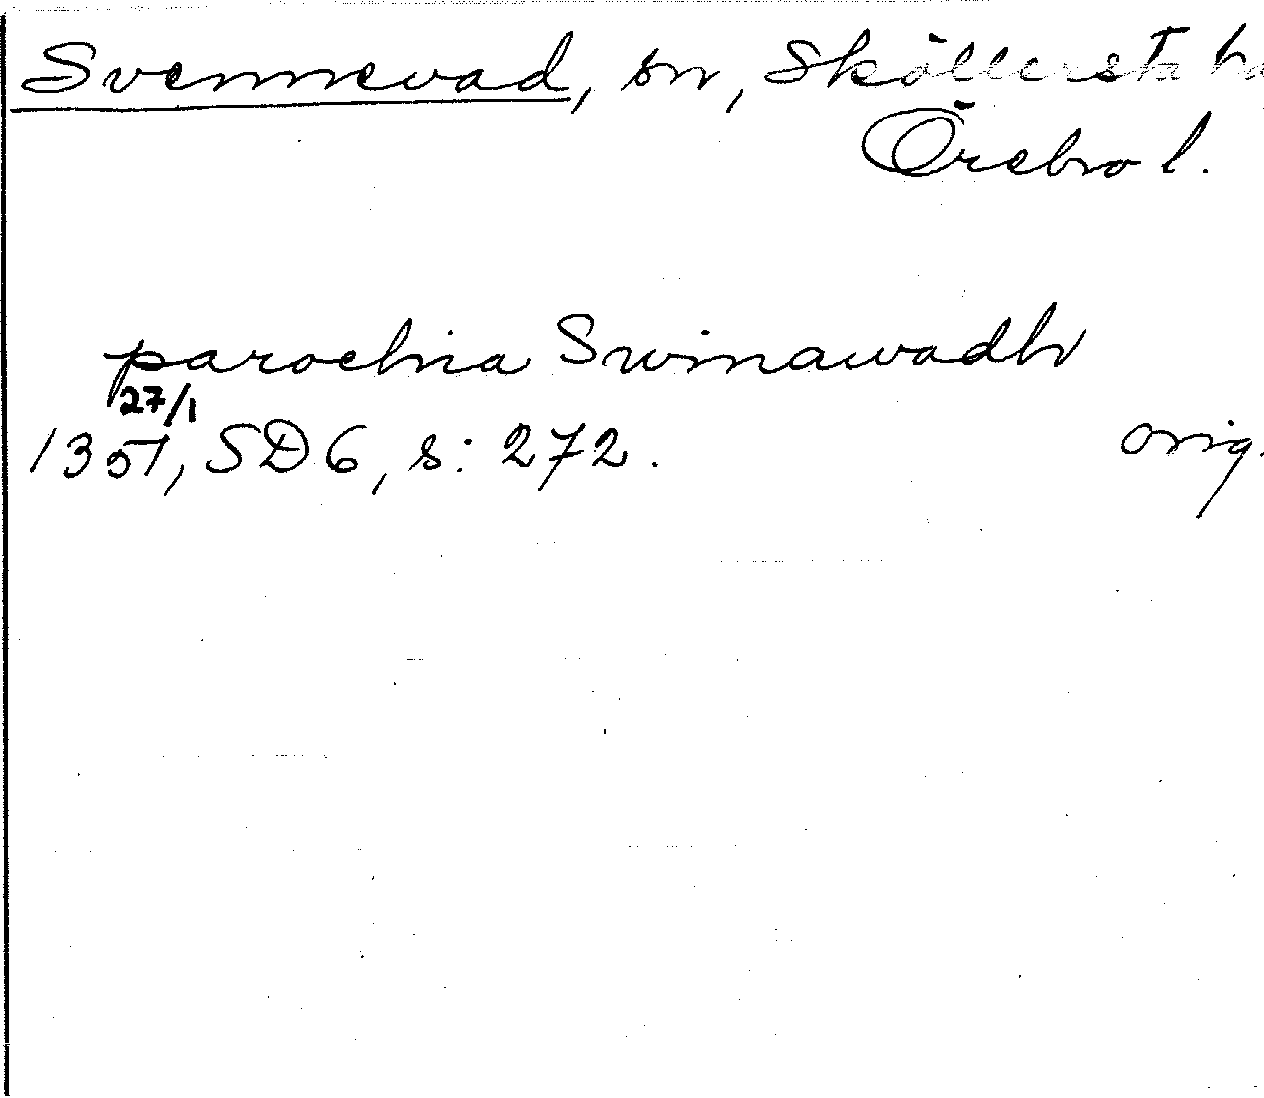 Svennevad, sn, Sköllersta hd
Örebro l.
parochia Swinawadh
27/1
1351, SD 6, s: 272. orig.